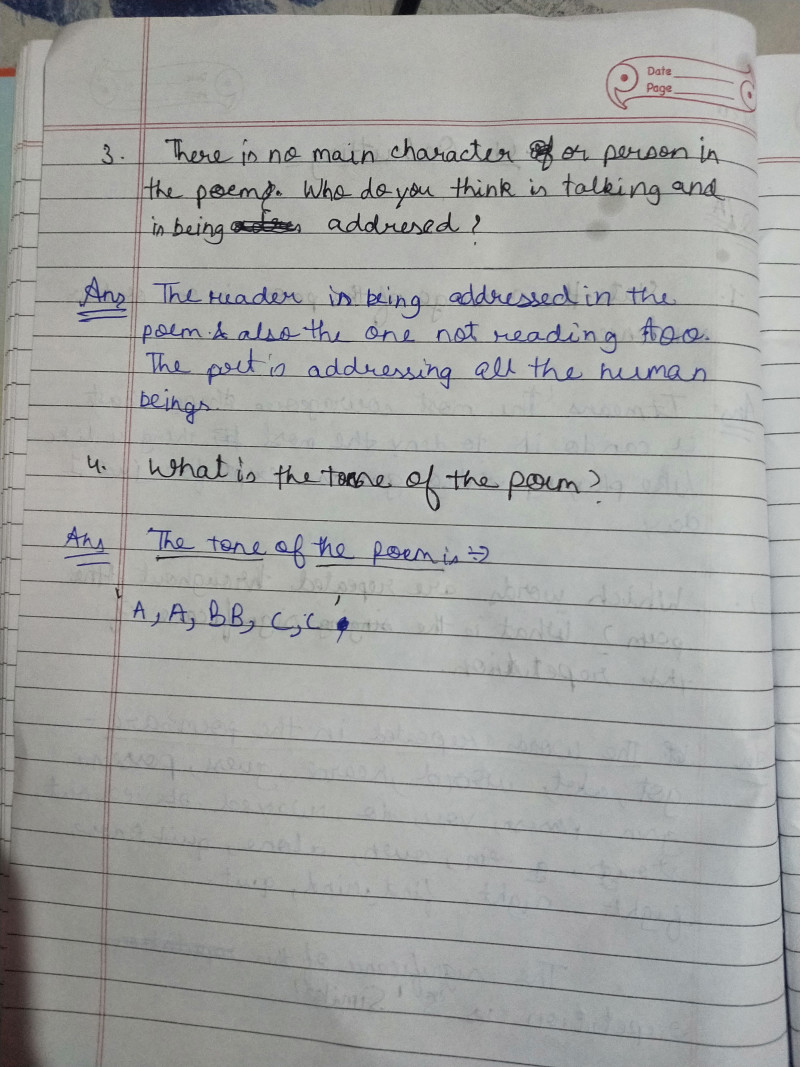 Date
Page
3. There is no main character or person in
the poem. Who do you think is talking and
is being addresed?
Ans The reader is being addressed in the
poem & also the one not reading too.
The poet is addressing all the human
beings.
4. What is the tone of the poem?
Ans The tone of the poem is ⇒
A, A, BB, C, C